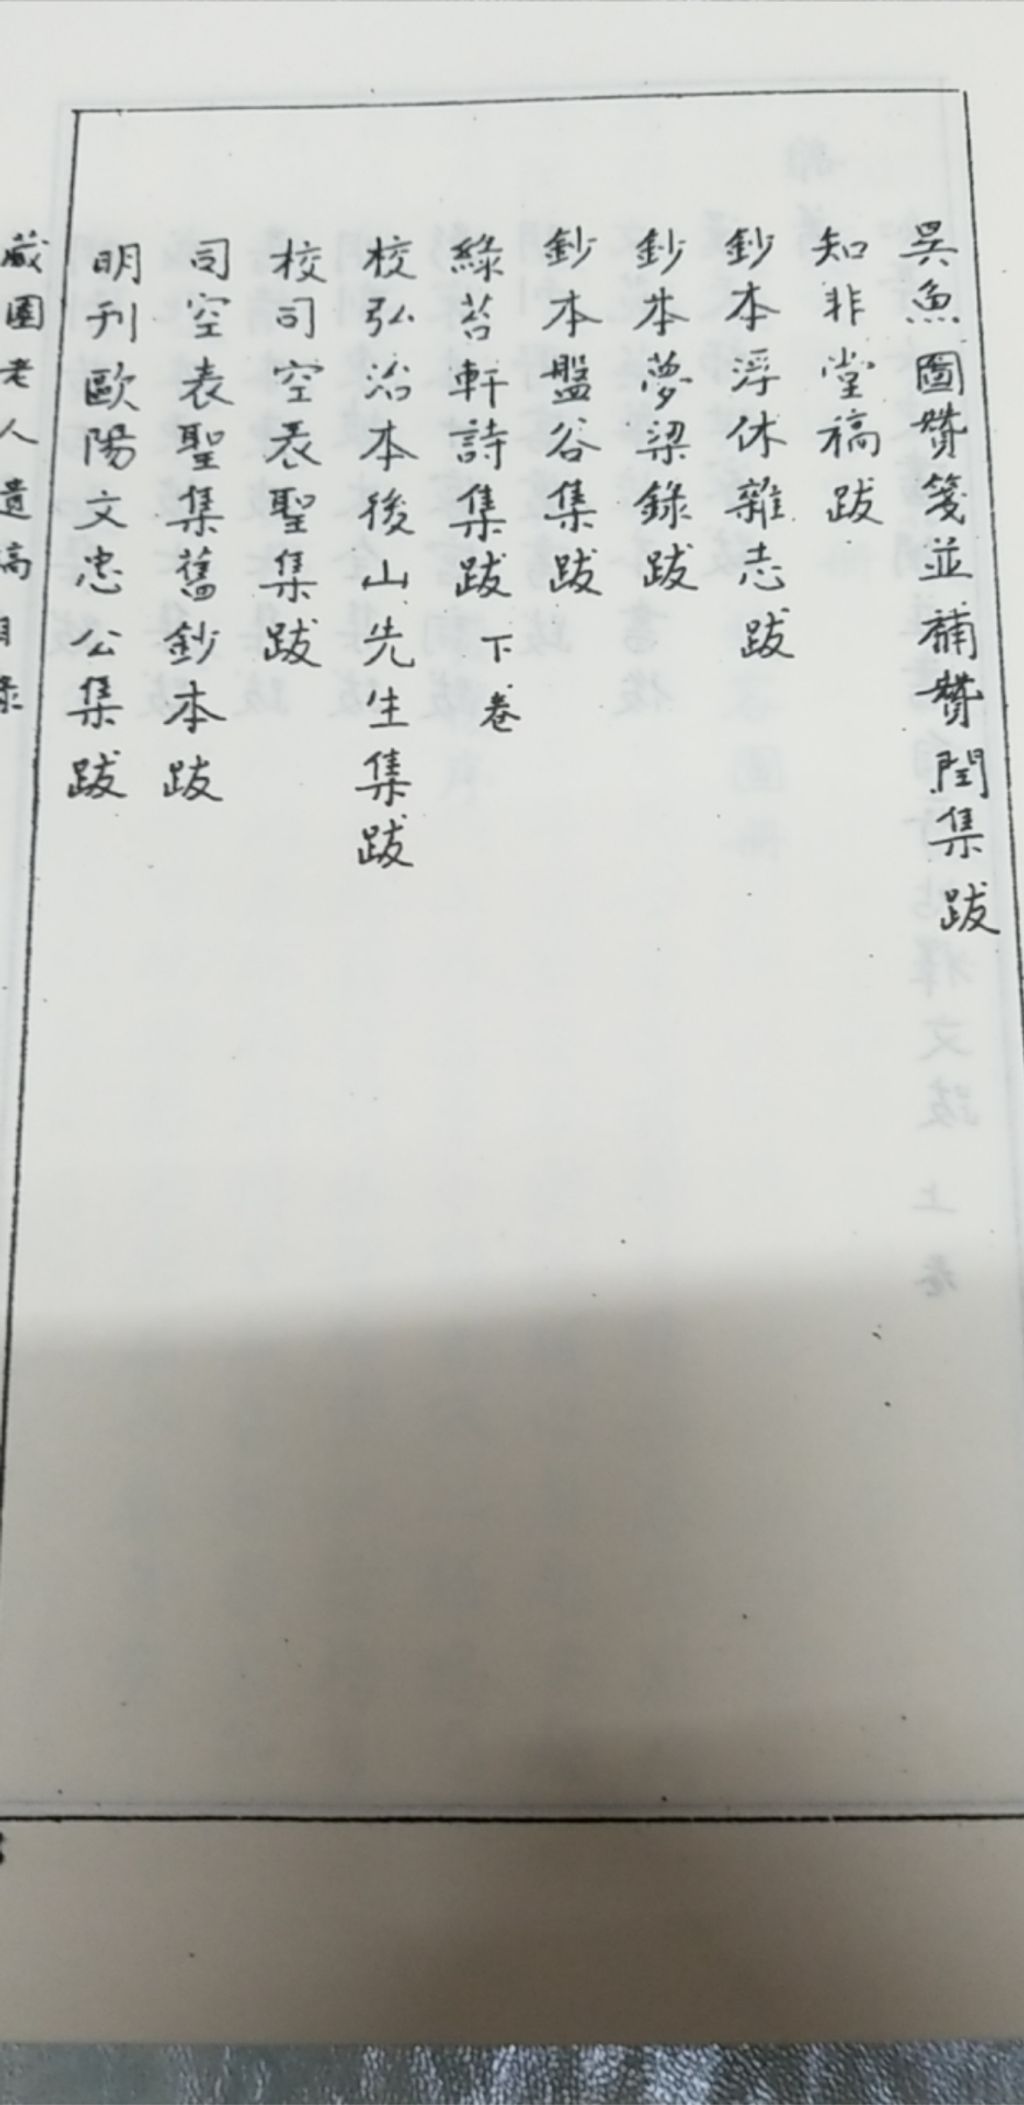 異魚圖贊箋並補贊閏集跋
知非堂稿跋
鈔本浮休雜志跋
鈔本夢梁錄跋
鈔本盤谷集跋
綠苔軒詩集跋 下卷
校弘治本後山先生集跋
校司空表聖集跋
司空表聖集舊鈔本跋
明刊歐陽文忠公集跋
藏園老人遺稿目錄